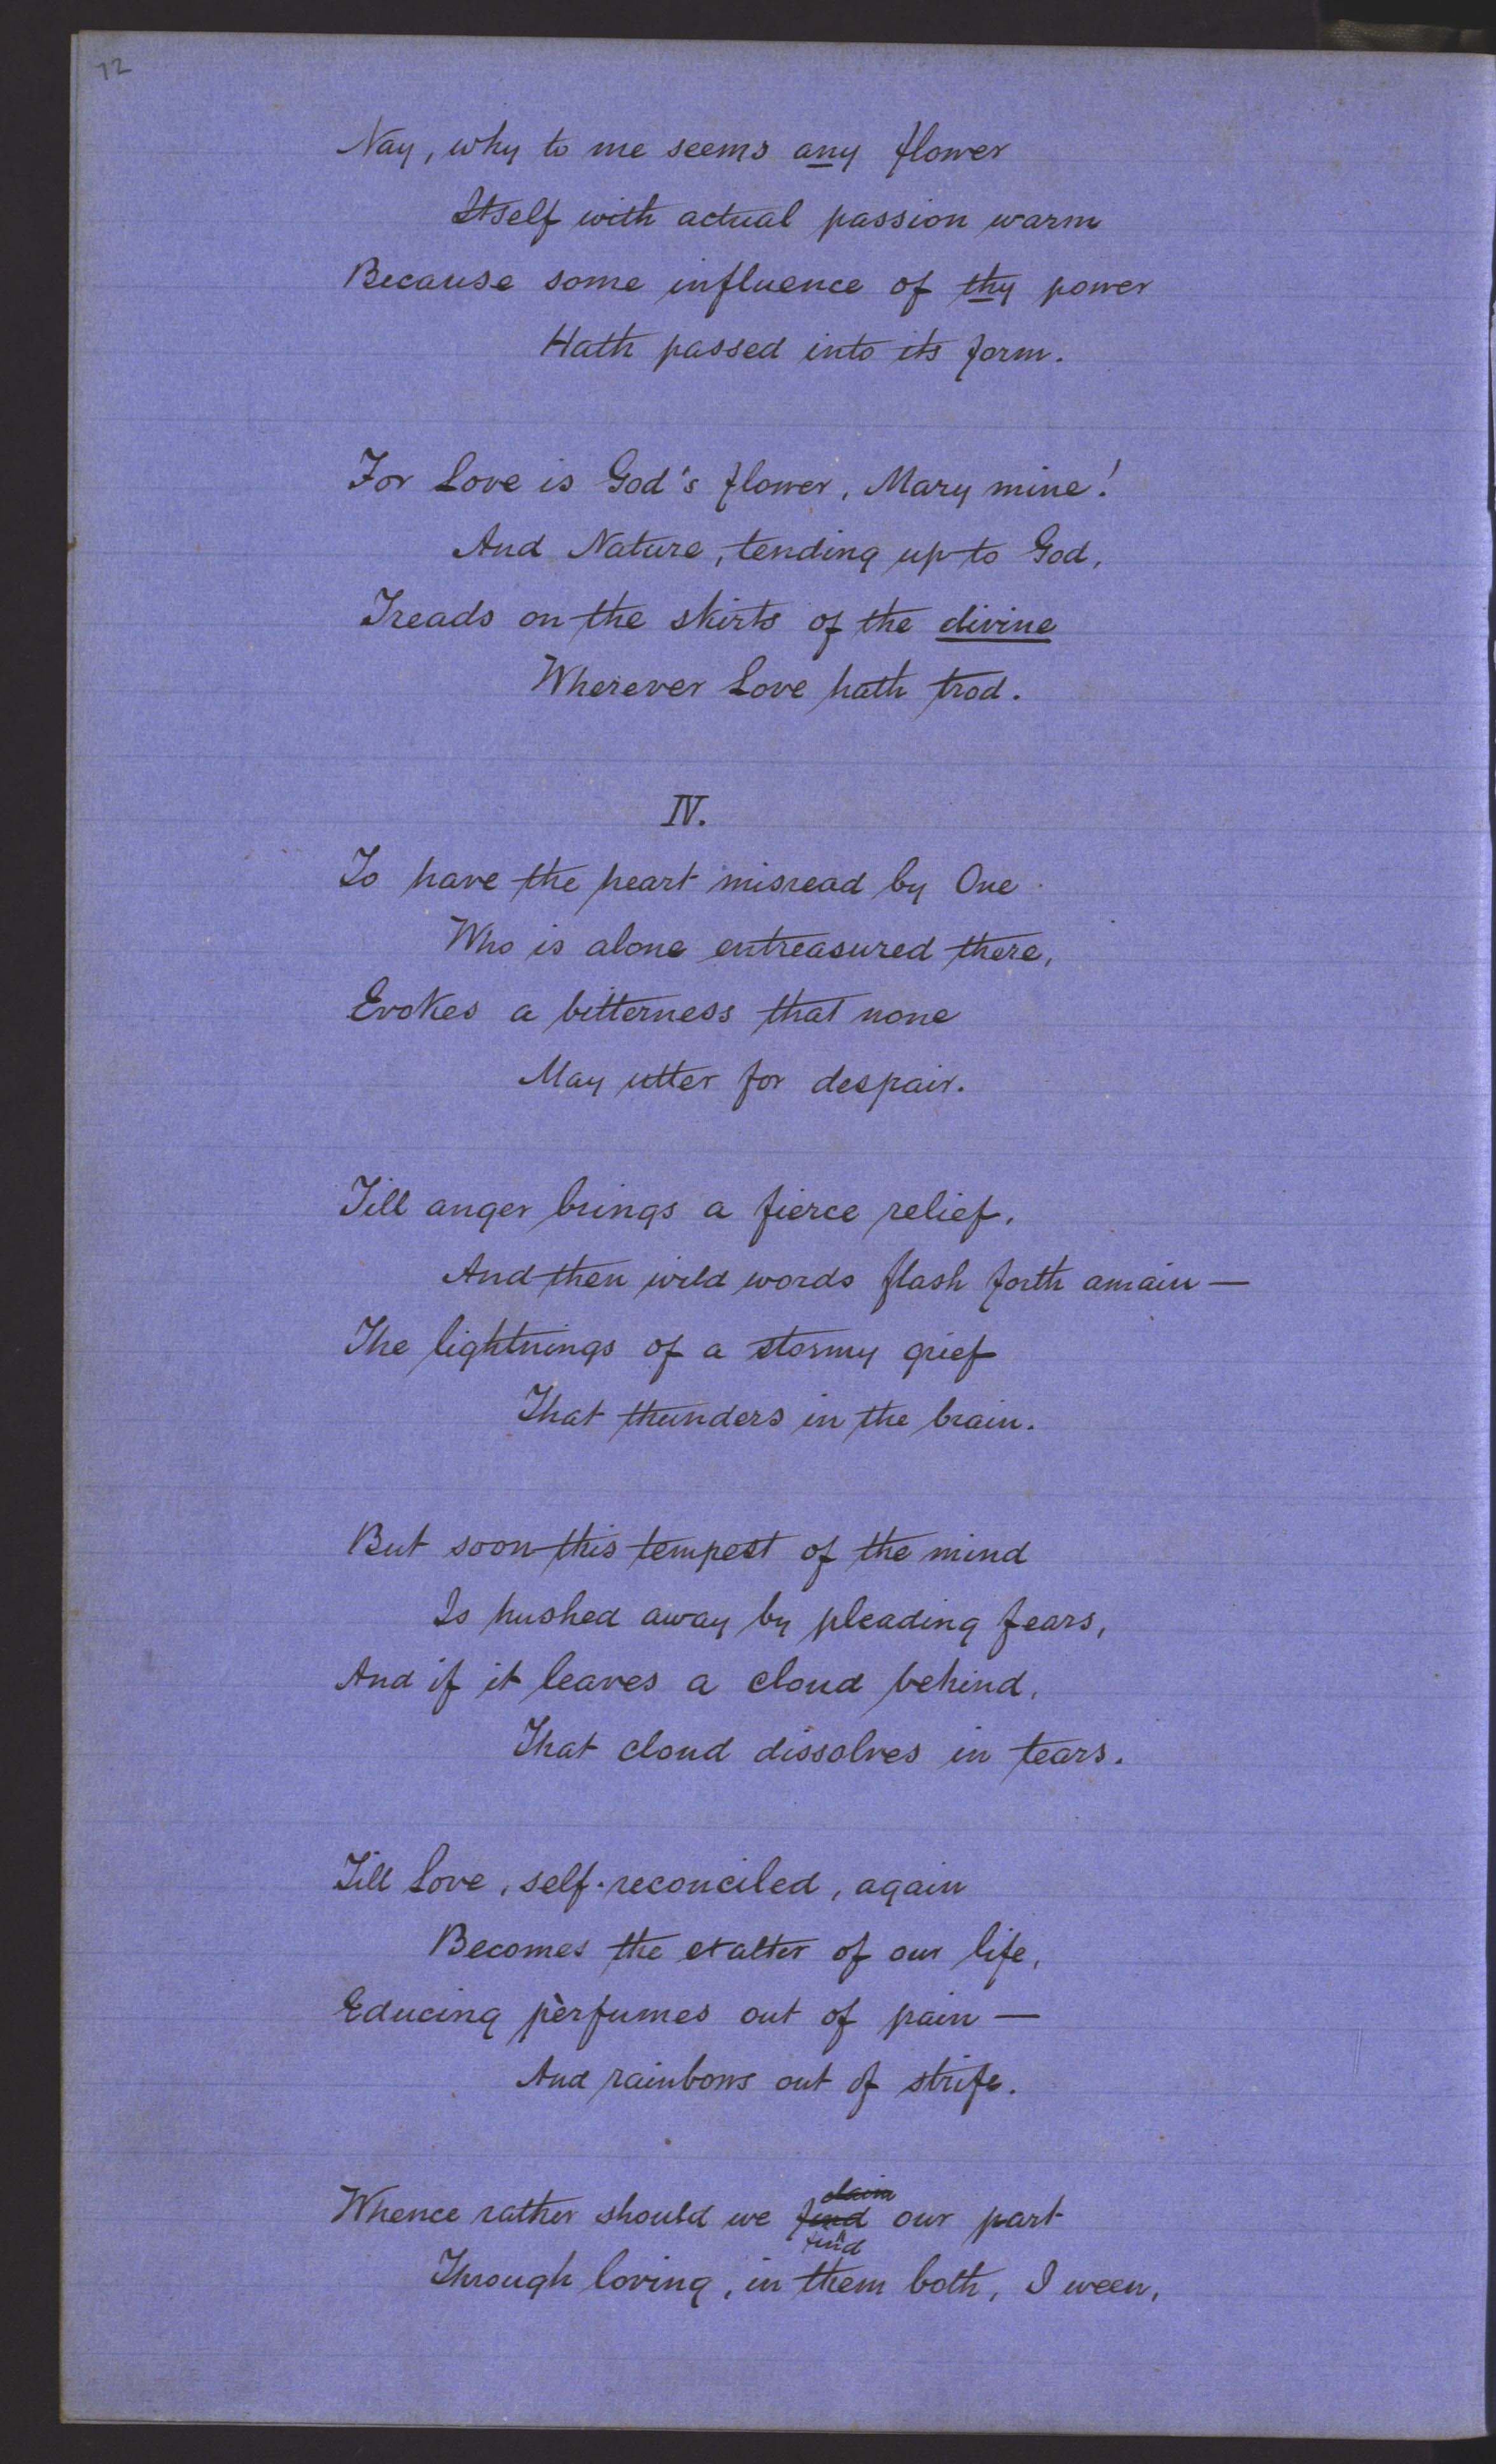 12
Nay, why to me seems any flower
Itself with actual passion warm
Because some influence of thy power
Hath passed into its form.
For Love is God's flower, Mary mine!
And Nature, tending up to God,
Treads on the skirts of the divine
Wherever Love hath trod.
IV.
To have the heart misread by One
Who is alone entreasured there,
Evokes a bitterness that none
May utter for despair.
Till anger brings a fierce relief,
And then wild words flash forth amain —
The lightnings of a stormy grief
That thunders in the brain.
But soon this tempest of the mind
Is hushed away by pleading fears,
And if it leaves a cloud behind,
That cloud dissolves in tears.
Till Love, self-reconciled, again
Becomes the exalter of our life,
Educing perfumes out of pain —
And rainbows out of strife.
claim
Whence rather should we find our part
find
Through loving, in them both, I ween,